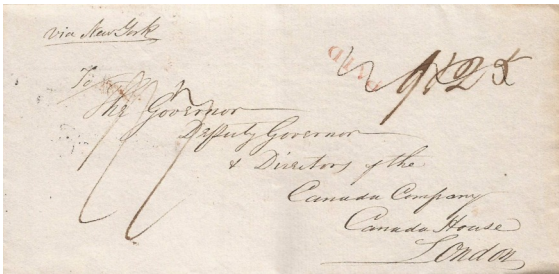 via New York
PAID
To
The Governor
Deputy Governor
& Directors of the
Canada Company
Canada House
London